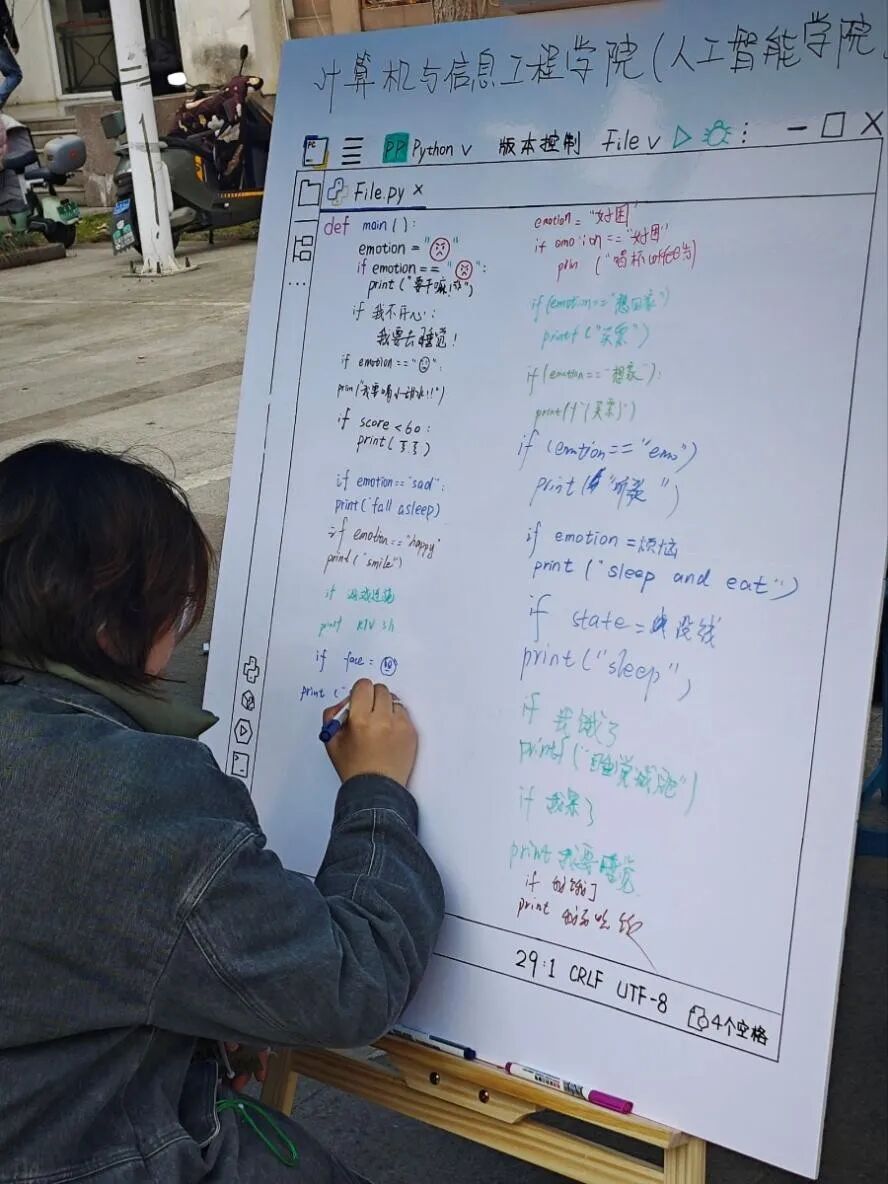 计算机与信息工程学院(人工智能学院
PC PP Python v 版本控制 File v
File.py ×
def main():
emotion = "☹"
if emotion == "☹":
print("要干嘛!!")
if 我不开心:
我要去睡觉!
if emotion == "☹":
print("我要喝小甜水!!")
if score < 60:
print(了了)
if emotion == "sad":
print("fall asleep)
if emotion == "happy"
print("smile")
if 游戏连跪
print KTV 5h
if face =
print ("
emotion = "好困"
if emo ion == "好困"
prin ("喝杯
if (emotion == "想回家")
printf ("买票")
if (emotion == "想家"):
printf("(买票了")
if (emtion == "emo")
print( " ")
if emotion = 烦恼
print ("sleep and eat")
if state = 没钱
print("sleep")
if 我饿了
printf("睡觉减肥")
if 我累了
print 我要睡觉
if 好饿
print 我要吃饭
29:1 CRLF UTF-8 4个空格